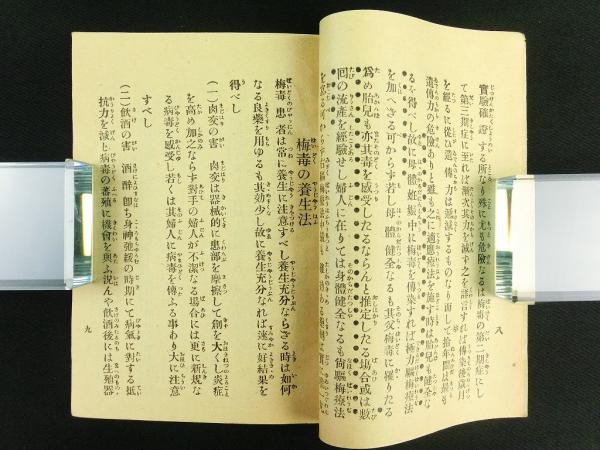 實驗確證する所なり殊に尤も危險なるは梅毒の第二期症にし
て第三期に至れば漸次其力減す之を證言すれば傳染後歳月
を經るに從ひ遺傳力は遞減するものなり而して
遺傳力の危險ありと雖も之に適應療法を施す時は胎兒も健全な
るを得べし故に母體妊娠中に梅毒を傳染すれば極力驅梅療法
を加へざる可からず若し母體健全なるも其父梅毒に罹りたる
爲め胎兒も亦其毒を感受したるならんと推定したる場合或は數
回の流產を經驗せし婦人に在りては身體健全なるも尙驅梅療法
八
梅毒の養生法
梅毒患者は常に養生に注意すべし養生充分ならざる時は如何
なる良藥を用ゆるも其効少し故に養生充分なれば速に好結果を
得べし
(一)肉交の害 肉交は器械的に患部を摩擦して創を大くし炎症
を高め加之ならず對手の婦人が不潔なる場合には更に新規な
る病毒を感受し若くは其婦人に病毒を傳ふる事あり大に注意
すべし
(二)飮酒の害 酒酔即ち身神弛緩の時期にて病氣に對する抵
抗力を減じ病毒の蕃殖に機會を與ふ況んや飮酒後には生殖器
九